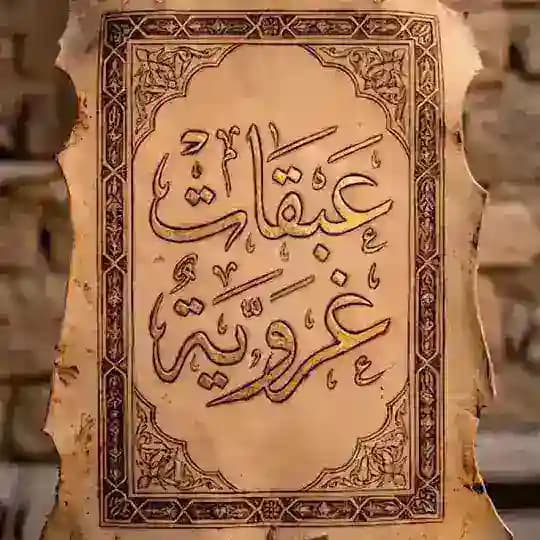 عبقات
غروية